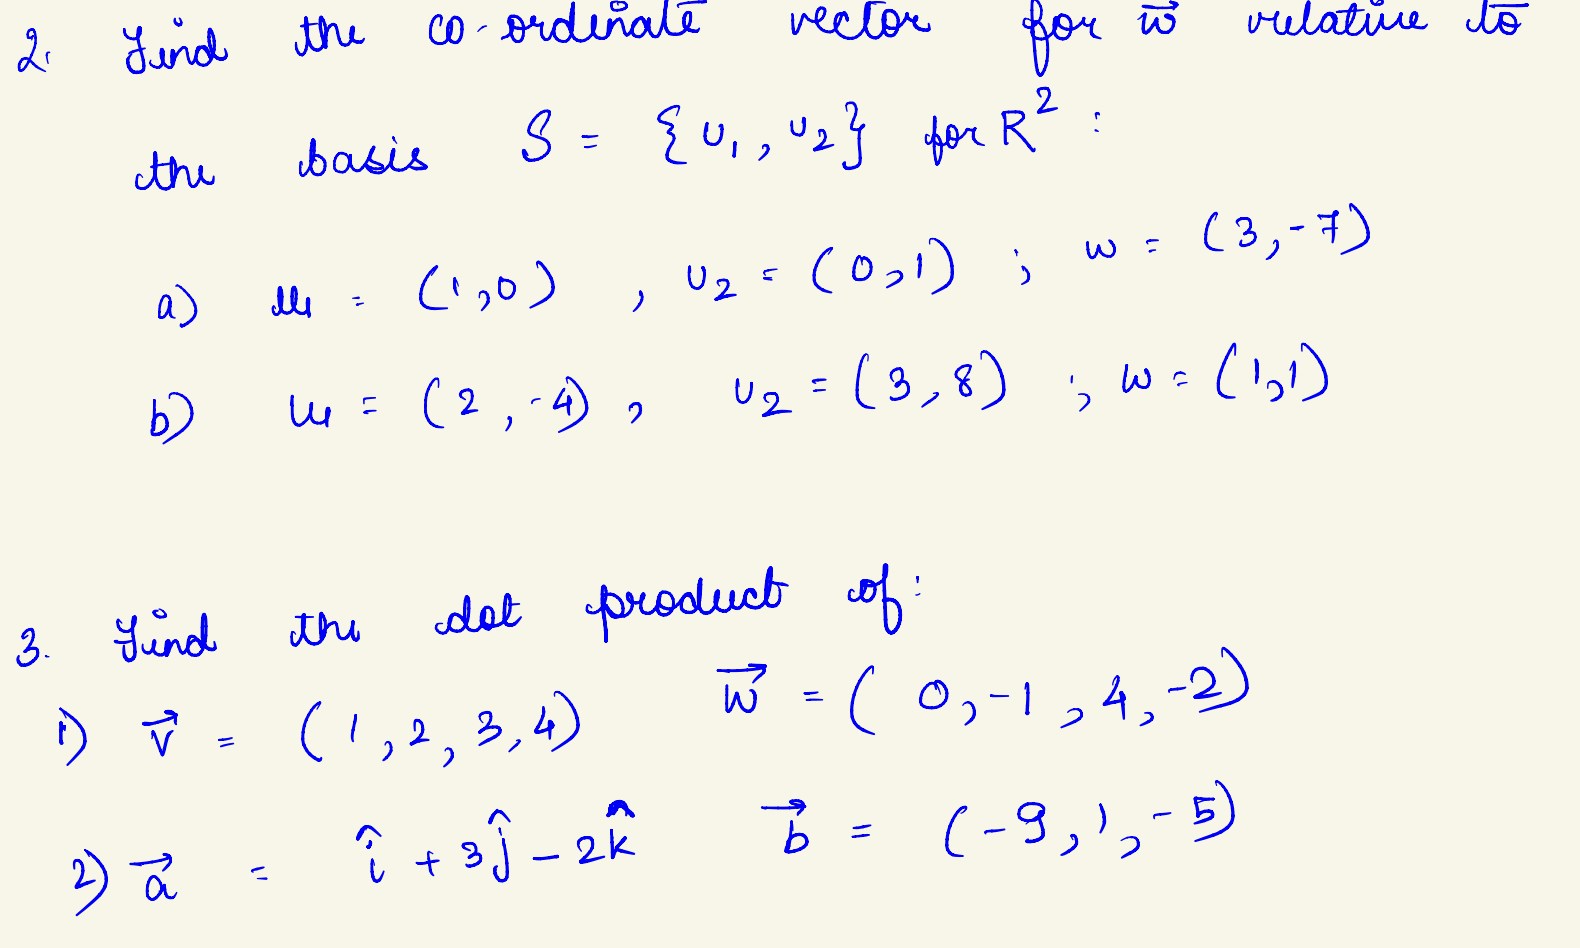 2. Find the co-ordinate vector for w⃗ relative to
the basis S = {u₁, u₂} for R² :
a) u₁ = (1,0) , u₂ = (0,1) ; w = (3,-7)
b) u₁ = (2,-4) , u₂ = (3,8) ; w = (1,1)
3. Find the dot product of:
1) v⃗ = (1,2,3,4) w⃗ = (0,-1,4,-2)
2) a⃗ = î + 3ĵ - 2k̂ b⃗ = (-9,1,-5)